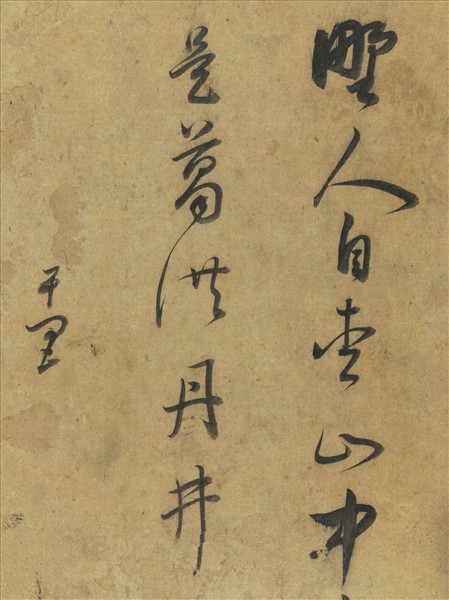 野人自愛山中
是葛洪丹井
千里